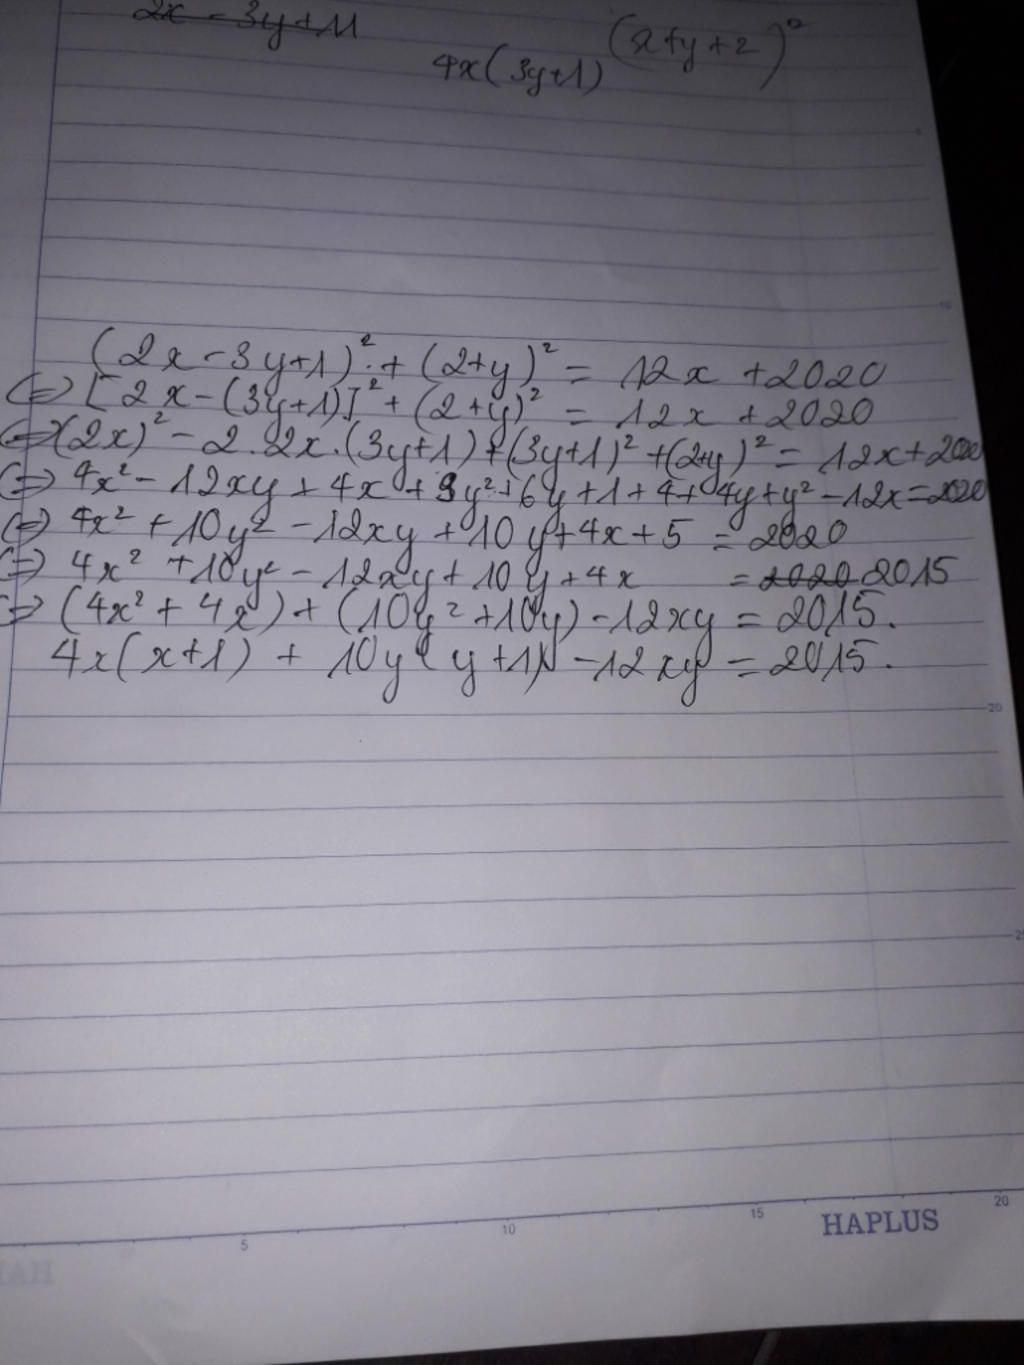 2x - 3y + 11
(x+y+2)²
4x(3y+1)
(2x-3y+1)² + (2+y)² = 12x + 2020
(=) [2x-(3y+1)]² + (2+y)² = 12x + 2020
(2x)² - 2.2x.(3y+1) + (3y+1)² + (2+y)² = 12x + 2020
(=) 4x² - 12xy + 4x + 9y² + 6y + 1 + 4 + 4y + y² - 12x = 2020
(=) 4x² + 10y² - 12xy + 10y + 4x + 5 = 2020
(=) 4x² + 10y² - 12xy + 10y + 4x = 2020 2015
(=) (4x² + 4x) + (10y² + 10y) - 12xy = 2015.
4x(x+1) + 10y(y+1) - 12xy = 2015.
5
10
15
20
25
5
10
15
20
HAPLUS